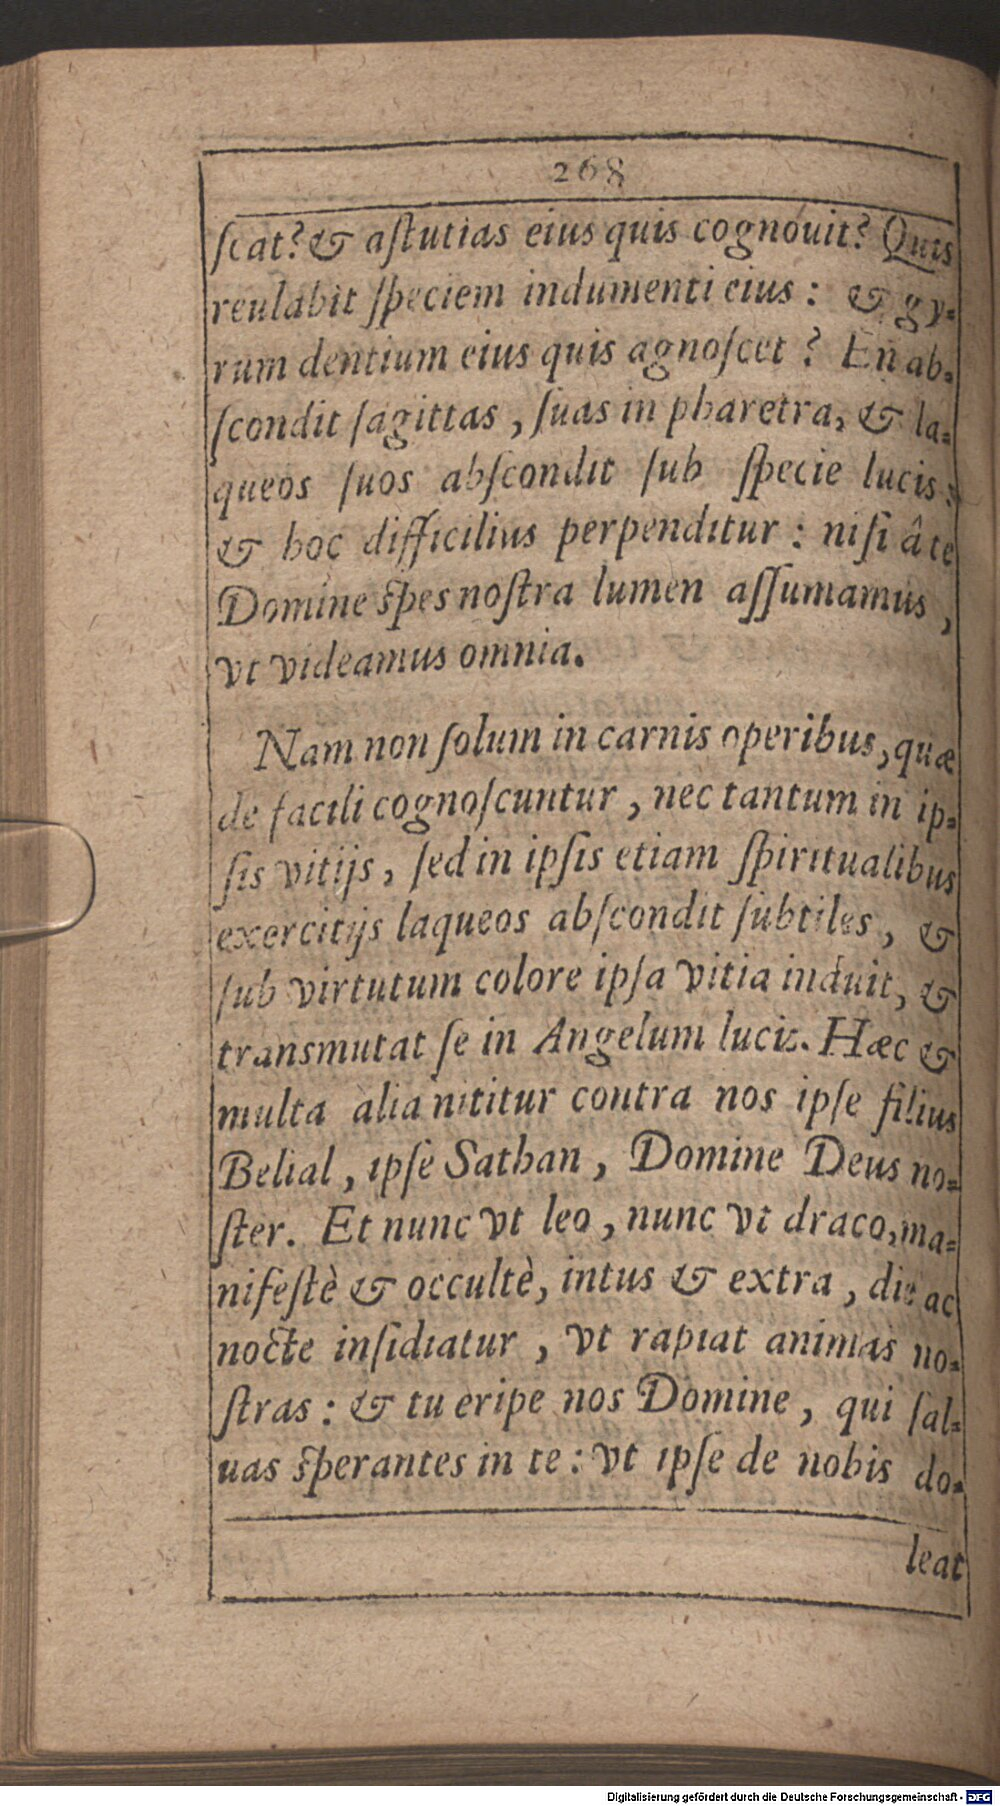 268
ſcat? & aſtutias eius quis cognóuit? Quis
reulabit ſpeciem indumenti eius: & gy-
rum dentium eius quis agnoſcet? En ab-
ſcondit ſagittas, ſuas in pharetra, & la-
queos ſuos abſcondit ſub ſpecie lucis:
& hoc difficilius perpenditur: niſi â te
Domine ſpes noſtra lumen aſſumamus,
vt videamus omnia.
Nam non ſolum in carnis operibus, quæ
de facili cognoſcuntur, nec tantum in ip-
ſis vitijs, ſed in ipſis etiam ſpiritualibus
exercitijs laqueos abſcondit ſubtiles, &
ſub virtutum colore ipſa vitia induit, &
transmutat ſe in Angelum lucis. Hæc &
multa alia nititur contra nos ipſe filius
Belial, ipſe Sathan, Domine Deus no-
ſter. Et nunc vt leo, nunc vt draco, ma-
nifeſtè & occultè, intus & extra, die ac
nocte inſidiatur, vt rapiat animas no-
ſtras: & tu eripe nos Domine, qui ſal-
uas ſperantes in te: vt ipſe de nobis do-
leat
Digitalisierung gefördert durch die Deutsche Forschungsgemeinschaft - DFG